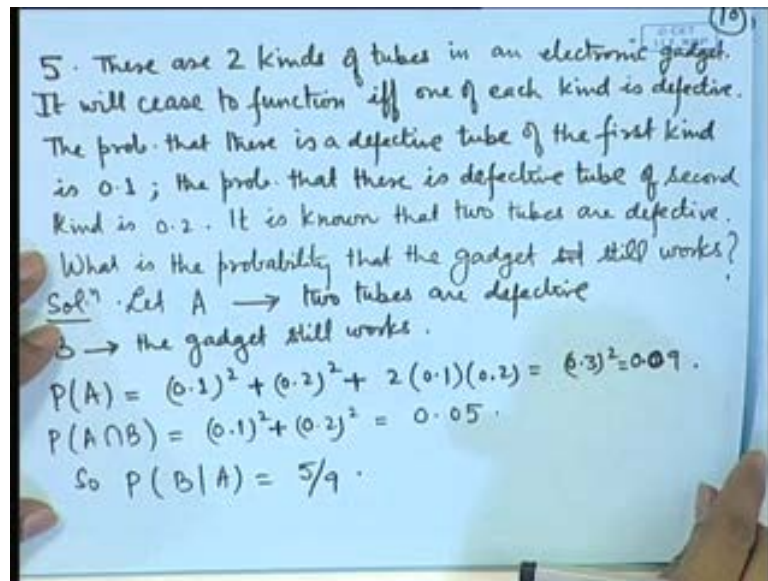 10
5. There are 2 kinds of tubes in an electronic gadget.
It will cease to function iff one of each kind is defective.
The prob. that there is a defective tube of the first kind
is 0.1; the prob. that there is defective tube of second
kind is 0.2. It is known that two tubes are defective.
What is the probability that the gadget still works?
Sol.ⁿ. Let A → two tubes are defective
B → the gadget still works.
P(A) = (0.1)² + (0.2)² + 2(0.1)(0.2) = (0.3)² = 0.09.
P(A∩B) = (0.1)² + (0.2)² = 0.05.
So P(B|A) = 5/9.